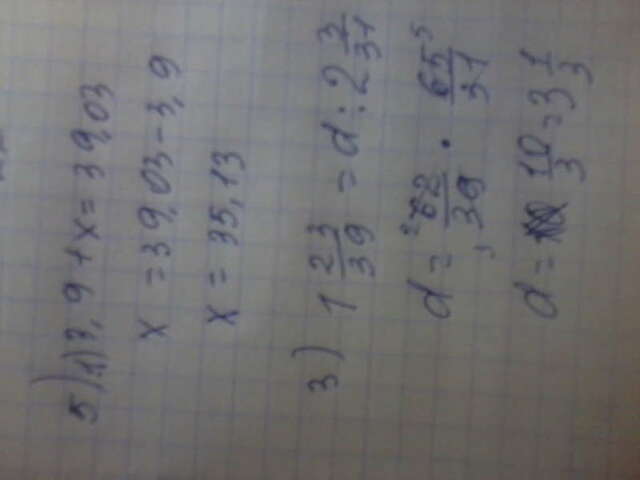 5) 1) 3,9 + x = 39,03
x = 39,03 - 3,9
x = 35,13
3) 1 23/39 = d : 2 3/31
d = 62/39 · 65/31
d = 10/3 = 3 1/3